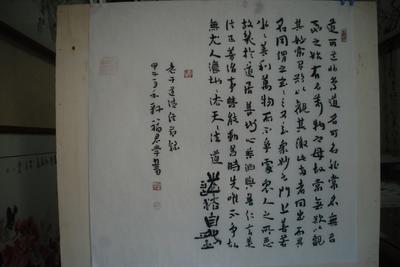 道可道非常道名可名非常名無名
之始有名萬物之母故常無欲以觀
其妙常有欲以觀其徼此兩者同出而異
名同謂之玄之又玄衆妙之門上善若
水水善利萬物而不爭處衆人之所惡
故幾於道居善地心善淵與善仁言善
信正善治事善能動善時夫唯不爭故
無尤人法地地法天天法道道法自然
老子道德經節錄
甲午